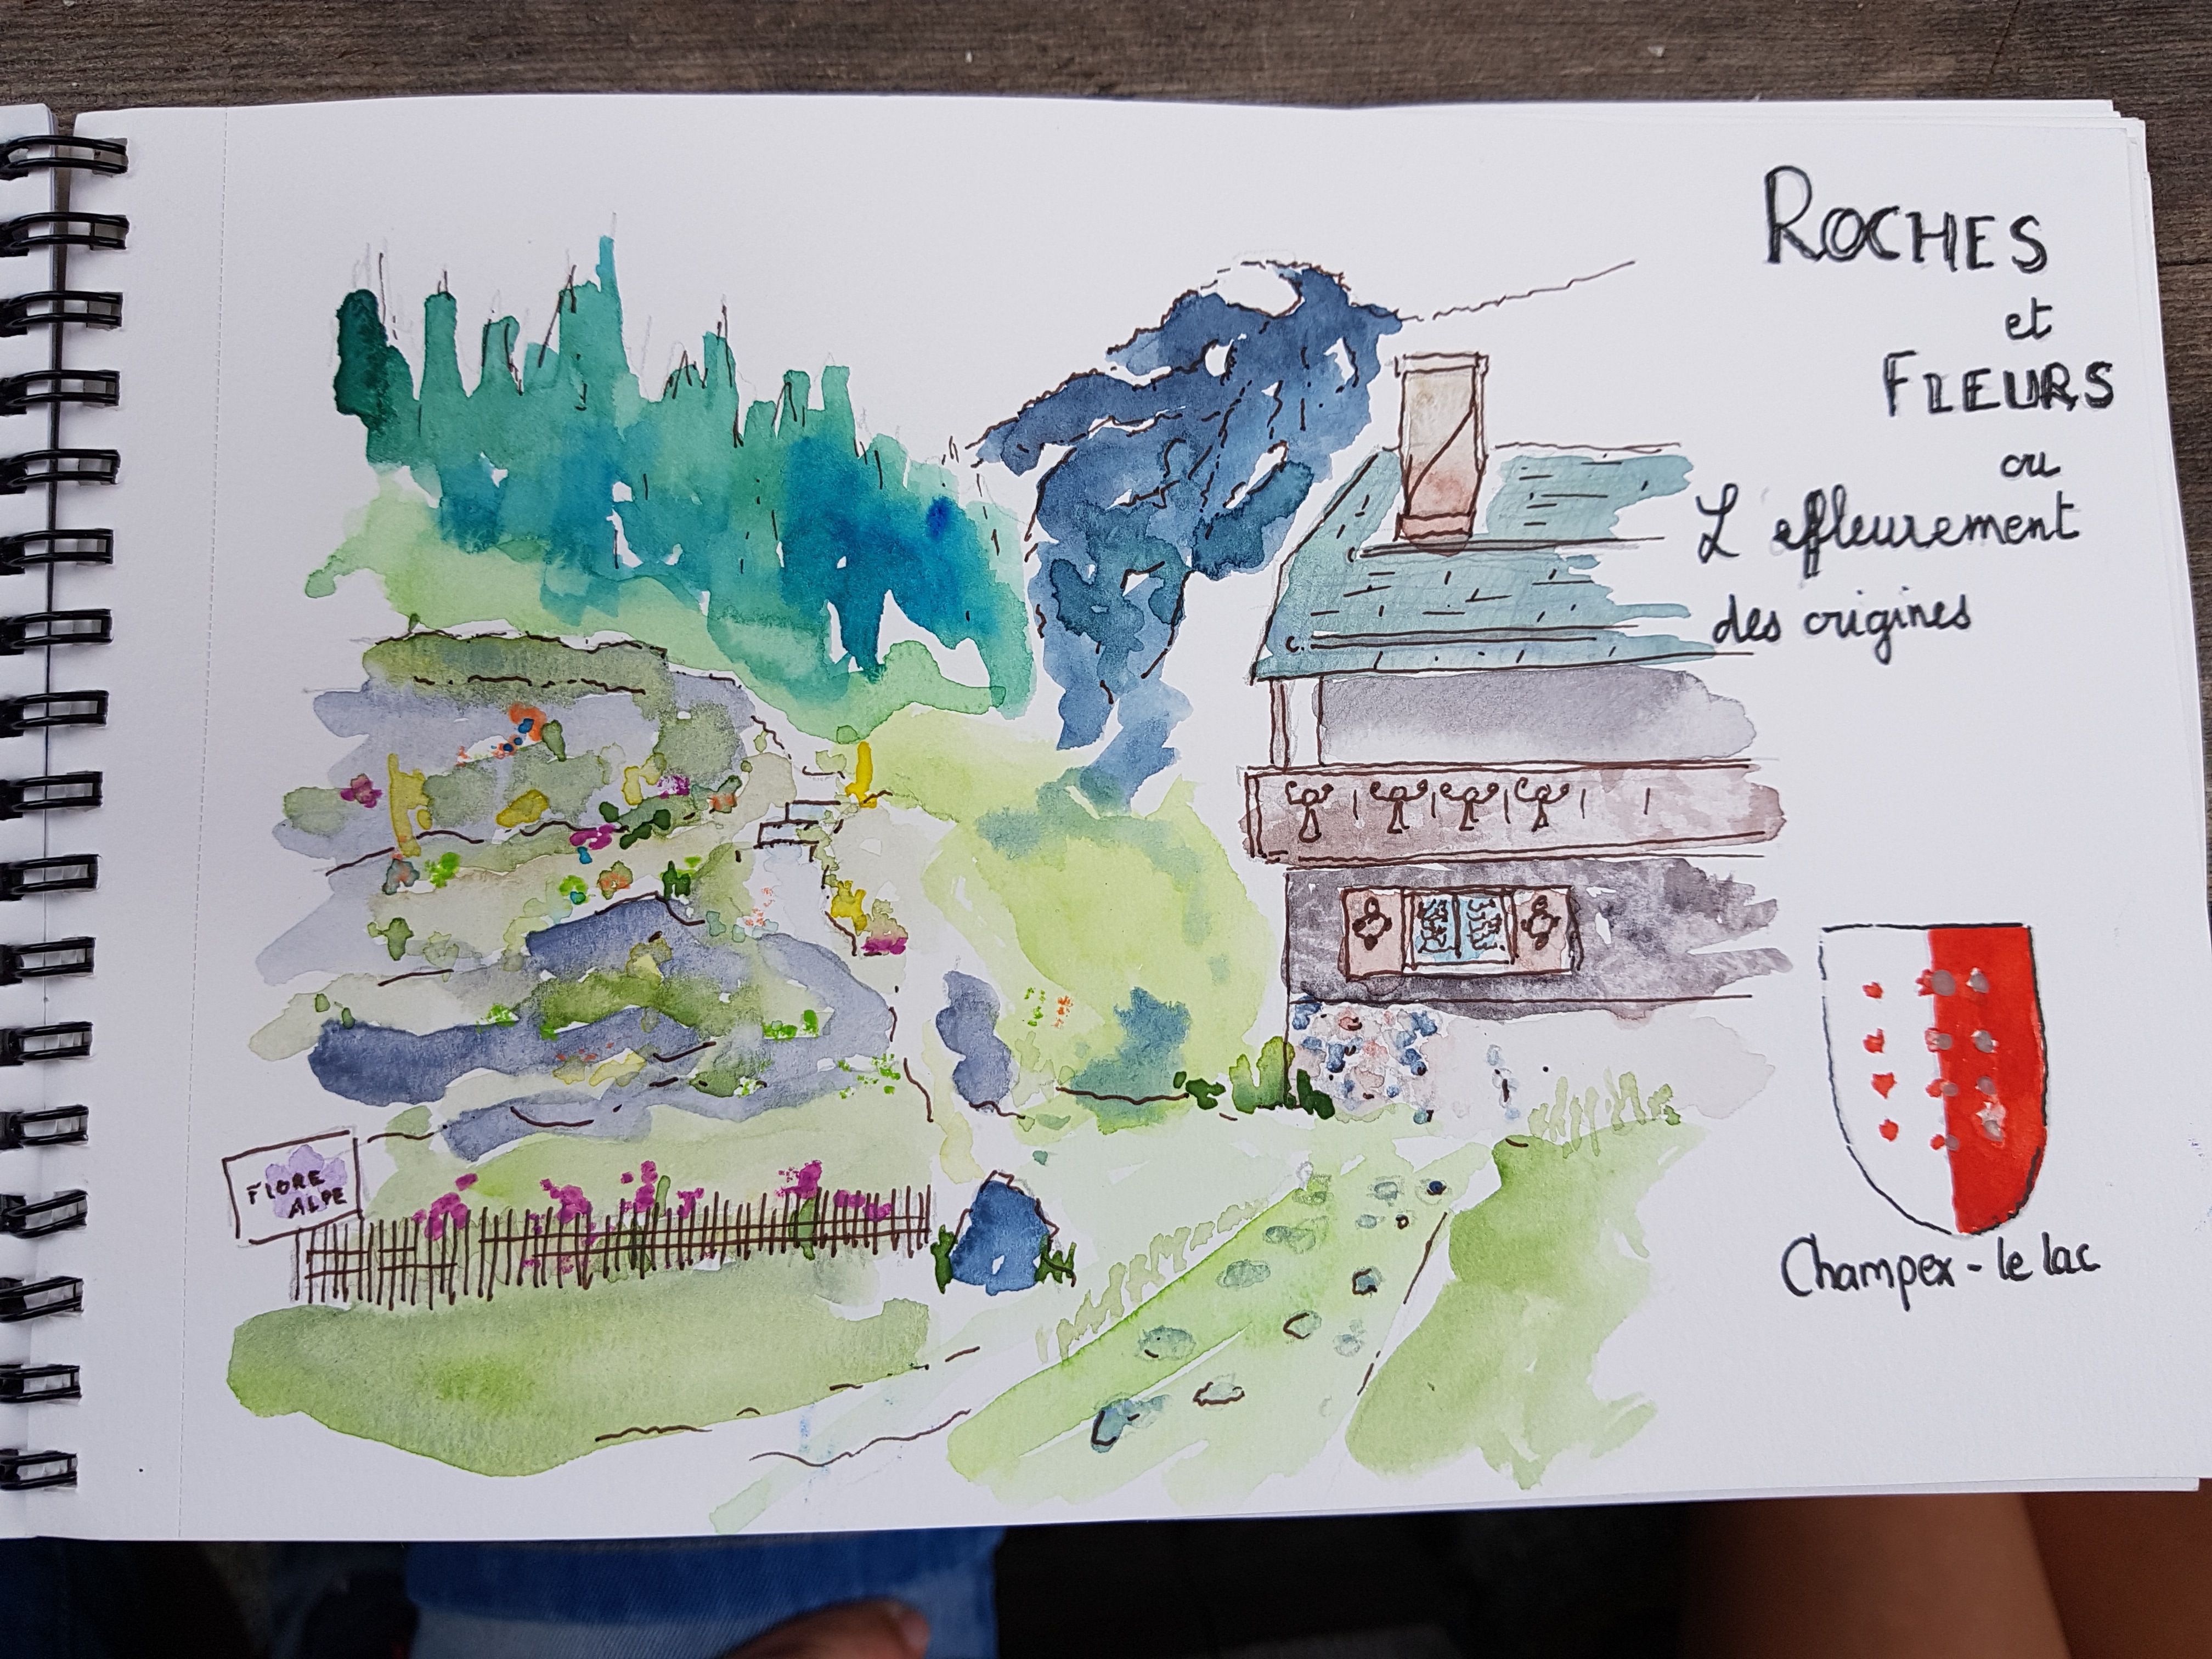 ROCHES
et
FLEURS
ou
L'effleurement
des origines
FLORE
ALPE
Champex-le lac